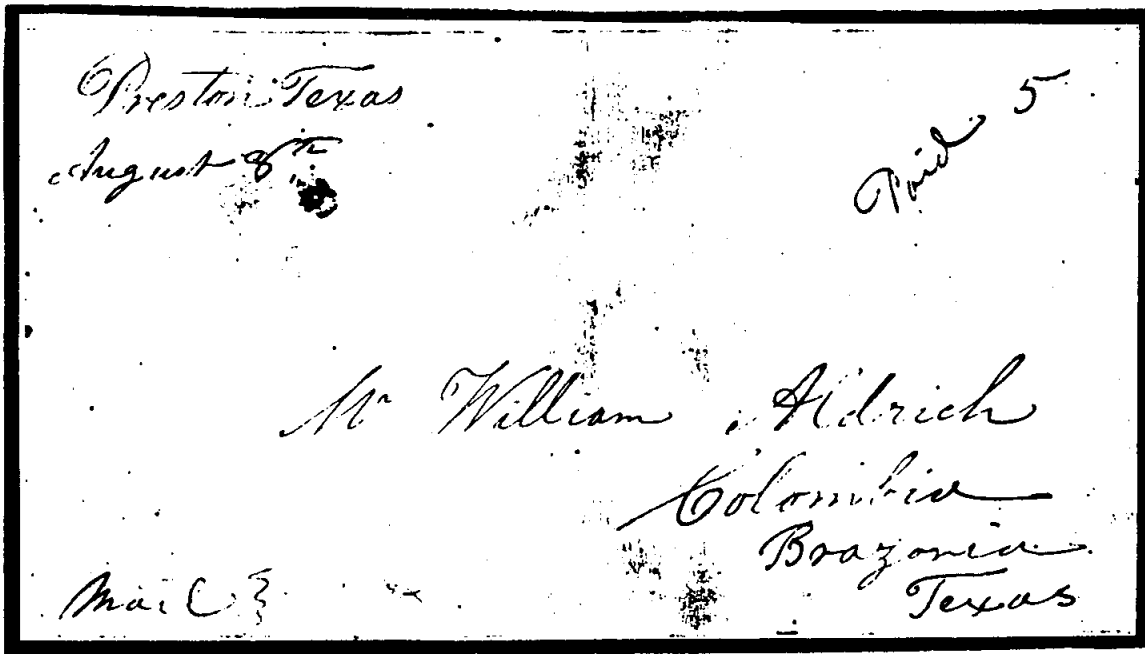 Preston Texas
August 8th
Paid 5
Mr William Aldrich
Colombia
Brazoria
Texas
Mail }